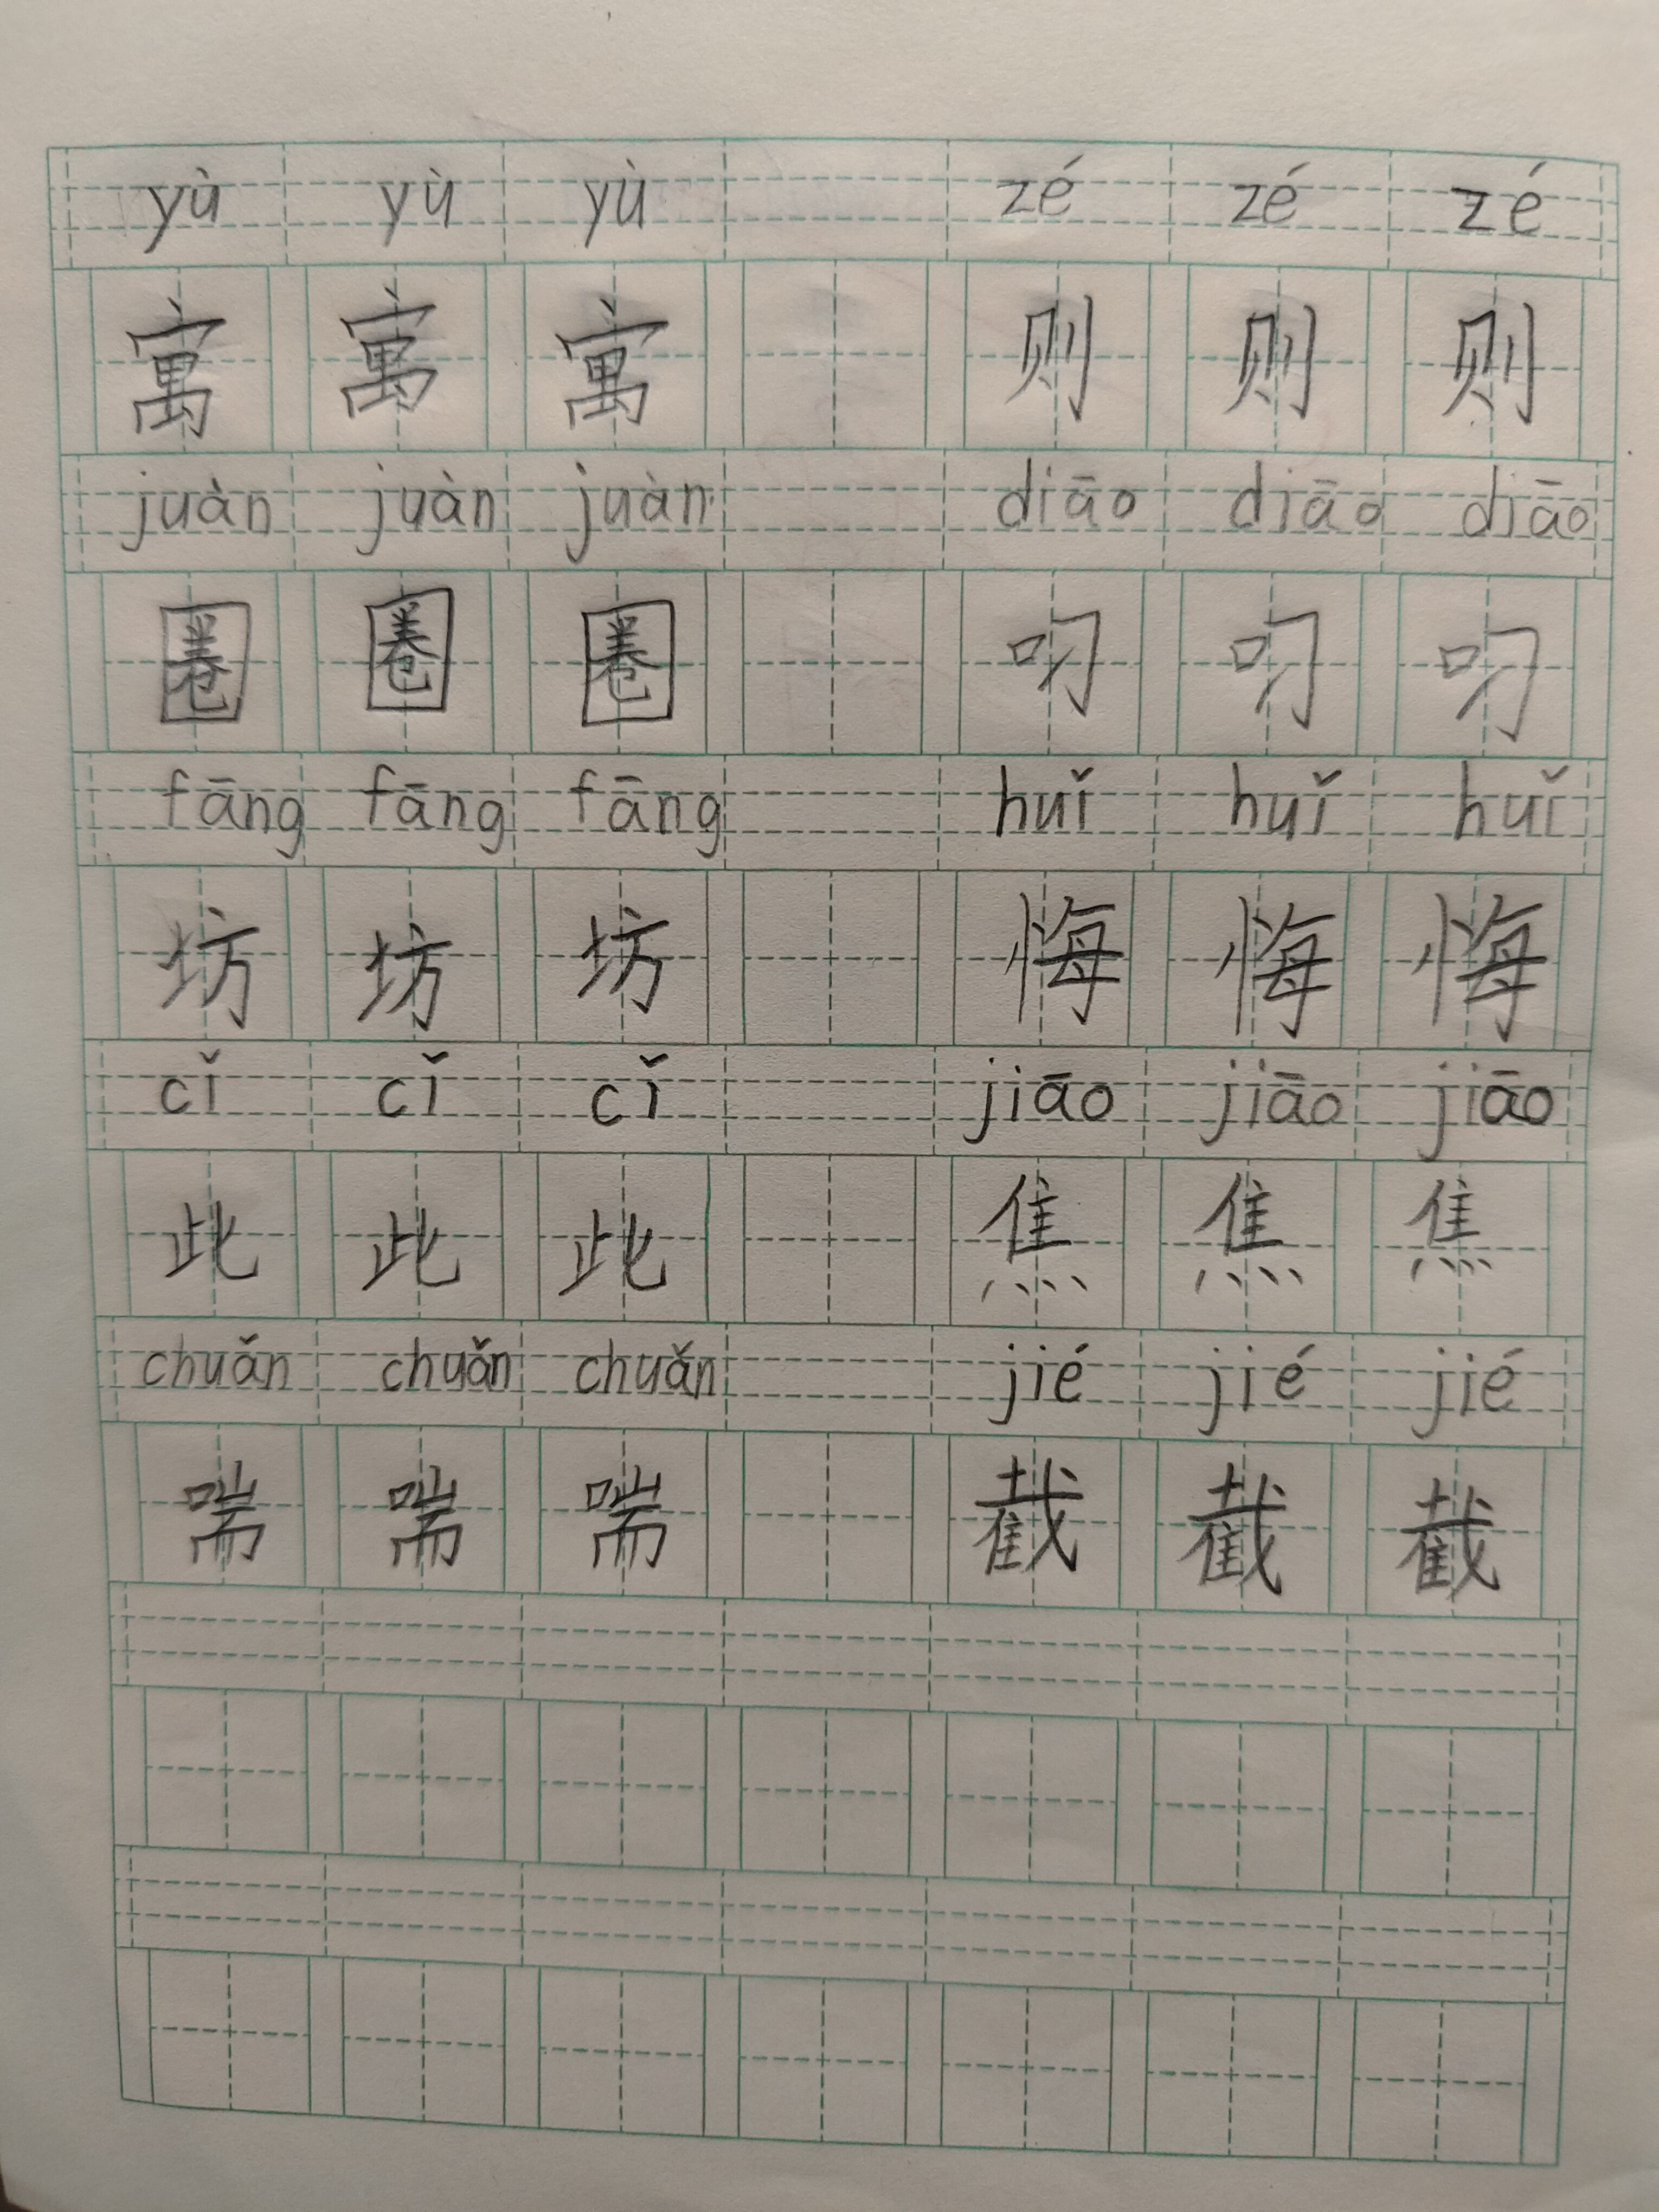 yù yù yù zé zé zé
寓 寓 寓 则 则 则
juàn juàn juàn diāo diāo diāo
圈 圈 圈 叼 叼 叼
fāng fāng fāng huǐ huǐ huǐ
坊 坊 坊 悔 悔 悔
cǐ cǐ cǐ jiāo jiāo jiāo
此 此 此 焦 焦 焦
chuǎn chuǎn chuǎn jié jié jié
喘 喘 喘 截 截 截